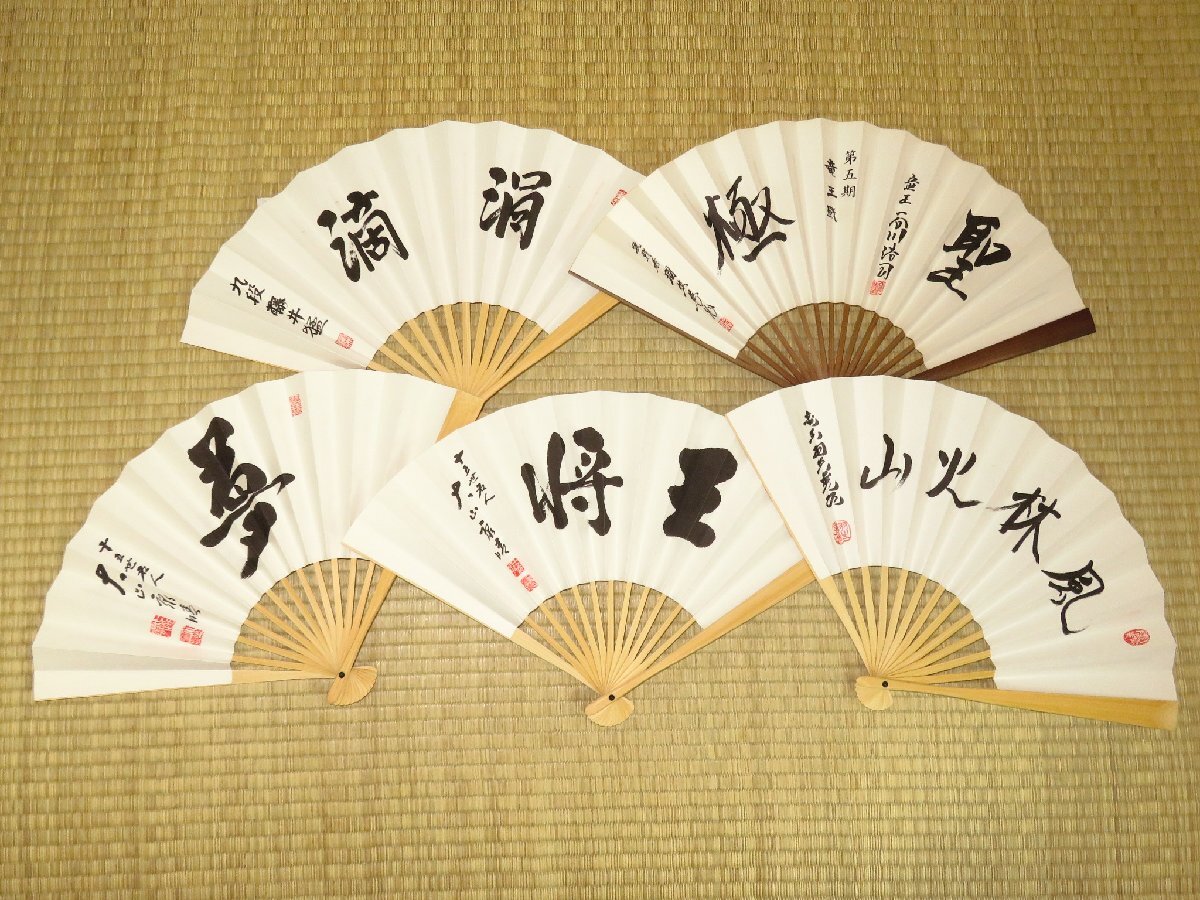 涓滴
九段 藤井猛
聖
竜王 谷川浩司
第五期
竜王戦
極
夢
十五世名人
大山康晴
王将
十五世名人
大山康晴
風林火山